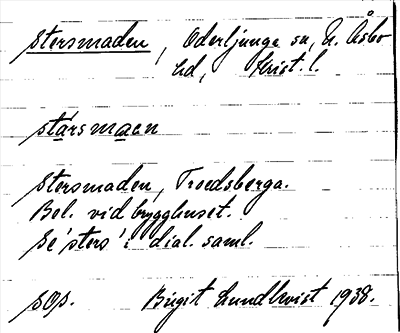 Stersmaden, Oderljunga sn, N. Åsbo
hd, Krist. l.
stärsmaen
Stersmaden, Troedsberga.
Bel. vid brygghuset.
Se 'sters' i dial. saml.
sop. Birgit Lundkvist 1938.